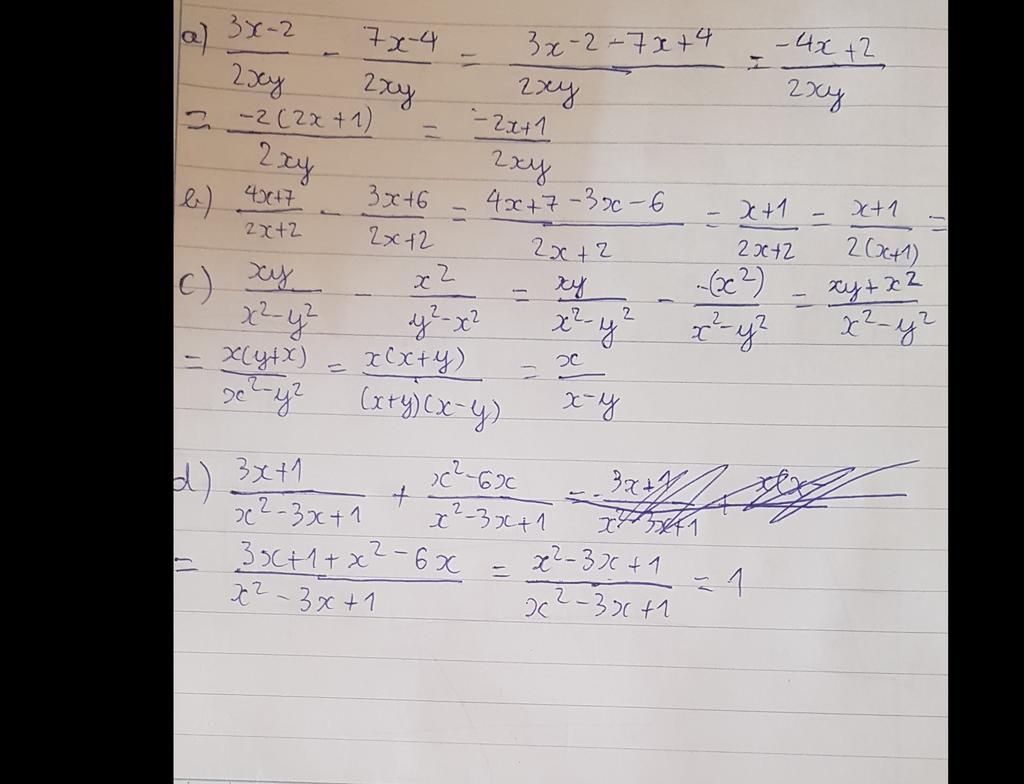 a) (3x-2)/(2xy) - (7x-4)/(2xy) = (3x-2-7x+4)/(2xy) = (-4x+2)/(2xy)
= (-2(2x+1))/(2xy) = (-2x+1)/(2xy)
b) (4x+7)/(2x+2) - (3x+6)/(2x+2) = (4x+7-3x-6)/(2x+2) = (x+1)/(2x+2) = (x+1)/(2(x+1)) =
c) (xy)/(x²-y²) - (x²)/(y²-x²) = (xy)/(x²-y²) - (-(x²))/(x²-y²) = (xy+x²)/(x²-y²)
= (x(y+x))/(x²-y²) = (x(x+y))/((x+y)(x-y)) = x/(x-y)
d) (3x+1)/(x²-3x+1) + (x²-6x)/(x²-3x+1)
= (3x+1+x²-6x)/(x²-3x+1) = (x²-3x+1)/(x²-3x+1) = 1